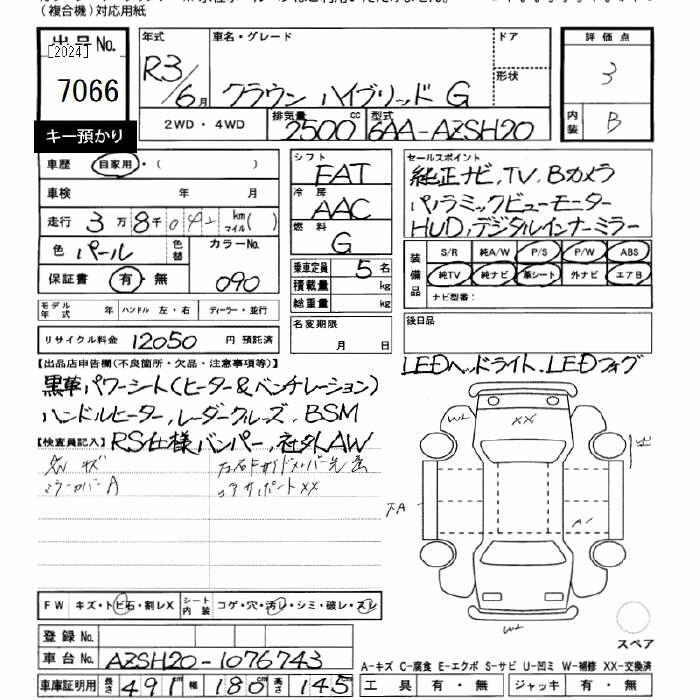 (複合機)対応用紙
出品No.
[2024]
7066
キー預かり
年式 R3/6月
車名・グレード
クラウン ハイブリッド G
ドア
形状
評価点
3
内装 B
2WD・4WD
排気量 2500 cc
型式 6AA-AZSH20
車歴 自家用・( )
車検 年 月
走行 3万8千 km マイル( )
色 パール 色替
カラーNo. 090
保証書 有・無
シフト FAT
冷房 AAC
燃料 G
乗車定員 5名
積載量 kg
総重量 kg
セールスポイント
純正ナビ、TV、Bカメラ
パノラミックビューモーター
HUD、デジタルインナーミラー
装備品
S/R 純A/W P/S P/W ABS
純TV 純ナビ 革シート 外ナビ エアB
ナビ型番:
モデル年式 年 ハンドル 左・右 ディーラー・並行
リサイクル料金 12050 円 預託済
名変期限
月 日
後日品
LEDヘッドライト、LEDフォグ
【出品店申告欄(不良箇所・欠品・注意事項等)】
黒革パワーシート(ヒーター&ベンチレーション)
ハンドルヒーター、レーダークルーズ、BSM
RS仕様バンパー、社外AW
【検査員記入】
ミラーカバーA
コアサポートXX
XX
FW キズ・トビ石・割レX
シート内装 コゲ・穴・汚レ・シミ・破レ・スレ
登録No.
車台No. AZSH20-1076743
車庫証明用 長さ 491 cm 幅 180 cm 高さ 145 cm
スペア
A-キズ C-腐食 E-エクボ S-サビ U-凹ミ W-補修 XX-交換済
工具 有・無 ジャッキ 有・無